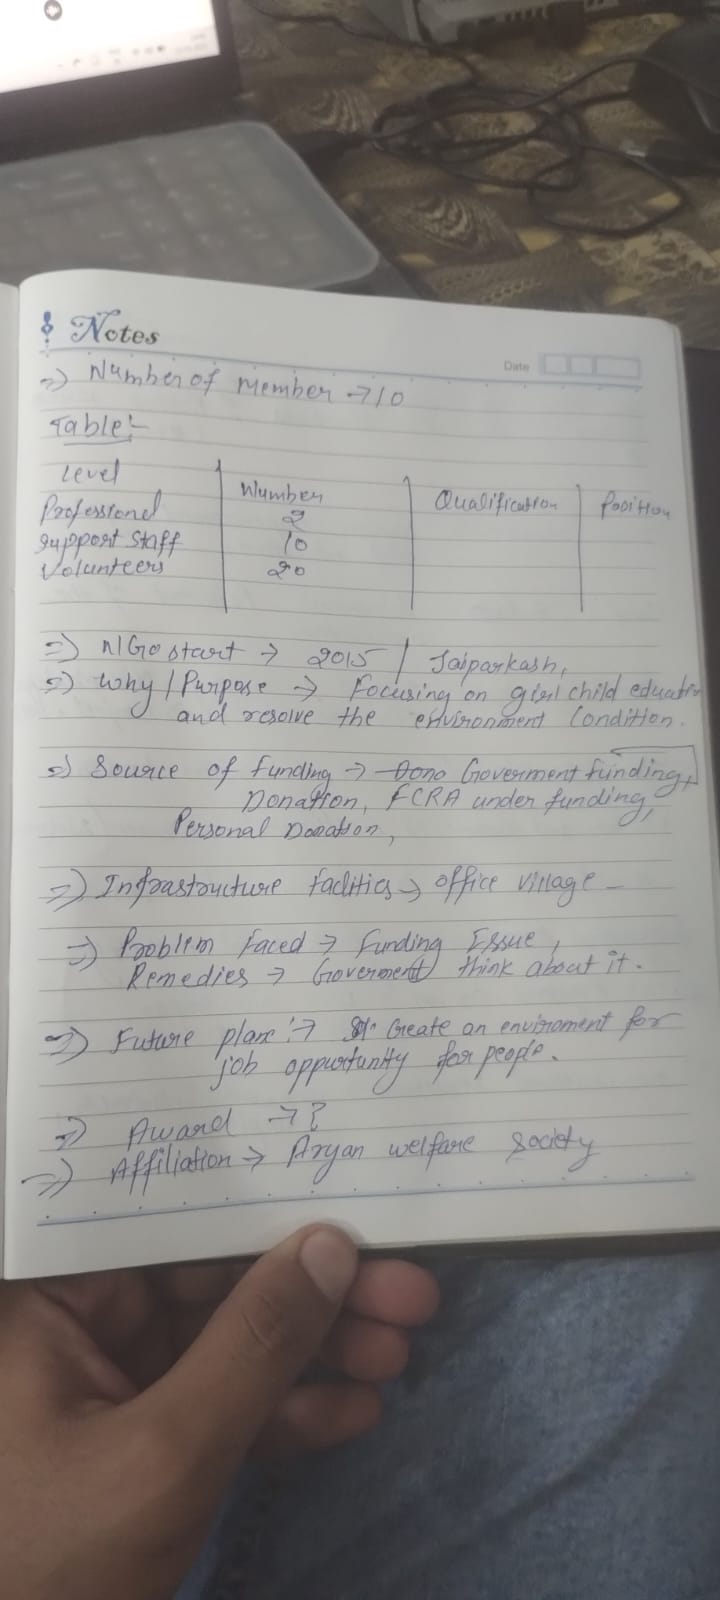 Notes
Date
=> Number of member -> 10
Table:-
Level | Number | Qualification | Position
Professional | 2
Support Staff | 10
Volunteers | 20
=> NGO start -> 2015 / Jaiparkash,
=> Why / Purpose -> Focusing on girl child eduation
and resolve the environment Condition.
=> Source of funding -> Dono Goverment funding,
Donation, FCRA under funding,
Personal Donation,
=> Infrastructure faclities -> office village -
=> Problem Faced -> Funding Issue,
Remedies -> Goverment think about it.
=> Future plan :-> Create an enviroment for
job oppurtunity for people.
=> Award -> ?
=> Affiliation -> Aryan welfare Society